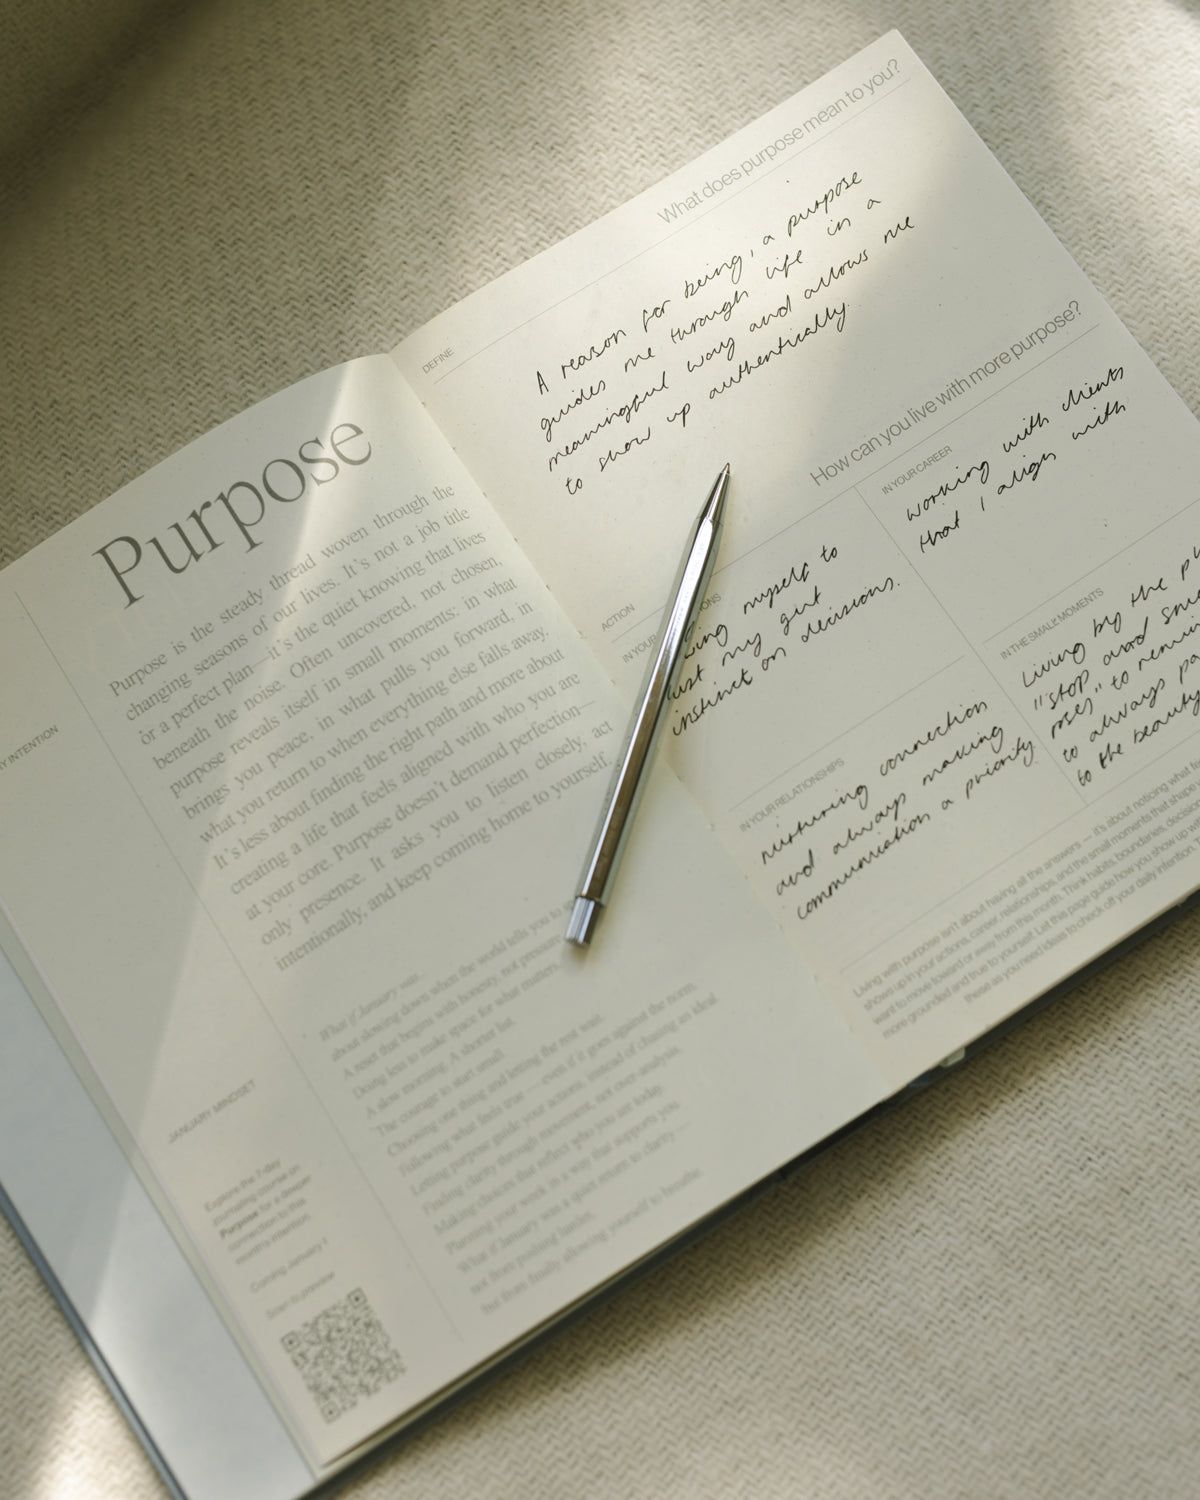 Purpose
Purpose is the steady thread woven through the
changing seasons of our lives. It's not a job title
or a perfect plan—it's the quiet knowing that lives
beneath the noise. Often uncovered, not chosen,
purpose reveals itself in small moments: in what
brings you peace, in what pulls you forward, in
what you return to when everything else falls away.
It's less about finding the right path and more about
creating a life that feels aligned with who you are
at your core. Purpose doesn't demand perfection—
only presence. It asks you to listen closely, act
intentionally, and keep coming home to yourself.
INTENTION
What if January was...
about slowing down when the world tells you to
A reset that begins with honesty, not
Doing less to make space for what matters
A slow morning. A shorter list.
The courage to start small.
Choosing one thing and letting the rest wait.
Following what feels true — even if it goes against the norm.
Letting purpose guide your actions, instead of chasing an ideal.
Finding clarity through movement, not over analysis.
Making choices that reflect who you are today.
Planning your work in a way that supports you.
What if January was a quiet return to clarity —
not from pushing harder,
but from finally allowing yourself to breathe.
JANUARY MINDSET
Explore the 7-day
journaling course on
Purpose for a deeper
connection to this
monthly intention.
Coming January 1
Scan to preview
What does purpose mean to you?
DEFINE
A reason for being, a purpose
guides me through life in a
meaningful way and allows me
to show up authentically.
How can you live with more purpose?
ACTION
IN YOUR
myself to
my gut
instinct on decisions.
IN YOUR CAREER
working with clients
that I align with
IN YOUR RELATIONSHIPS
nurturing connection
and always making
communication a priority
IN THE SMALL MOMENTS
Living by the
"stop and
roses" to
to always
to the beauty
Living with purpose isn't about having all the answers — it's about noticing what
shows up in your actions, career, relationships, and the small moments that
want to move toward or away from this month. Think habits, boundaries,
more grounded and true to yourself. Let this page guide how you show up
these as you need ideas to check off your daily intention.